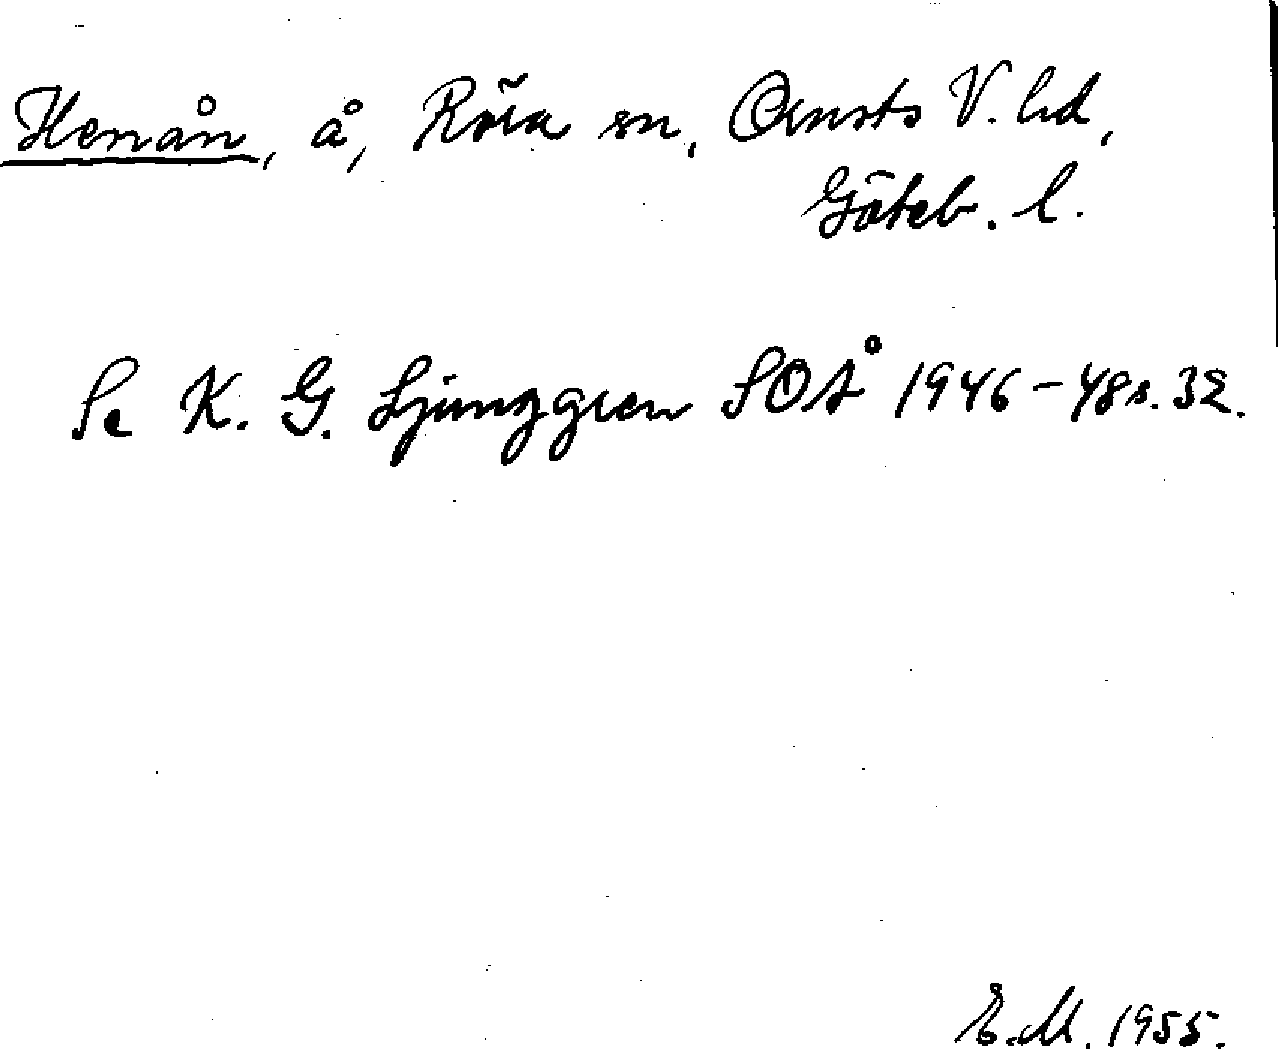 Henån, å, Röra sn, Orusts V. hd,
Göteb. l.
Se K. G. Ljunggren SOÅ 1946-48 s. 32.
E. M. 1955.